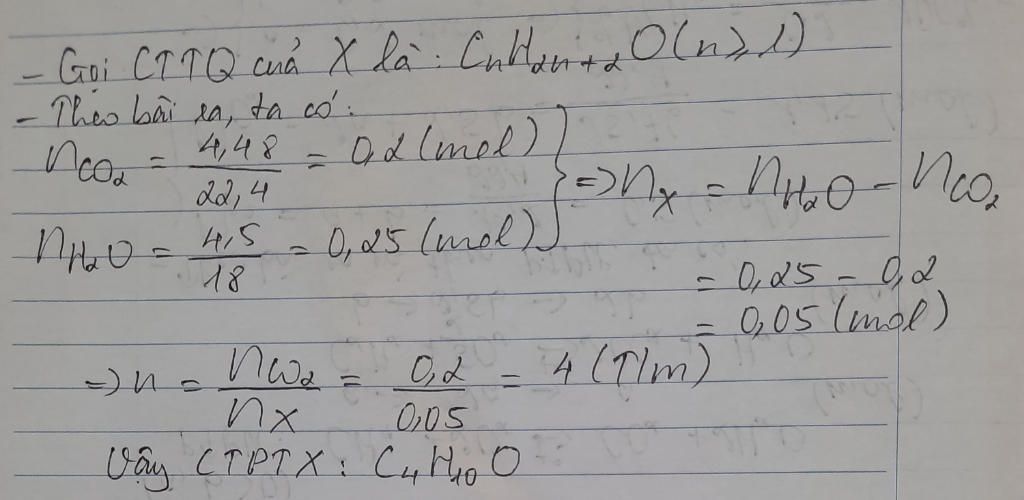 - Gọi CTTQ của X là: CₙH₂ₙ₊₂O(n ≥ 1)
- Theo bài ra, ta có:
n_CO₂ = 4,48/22,4 = 0,2 (mol)
n_H₂O = 4,5/18 = 0,25 (mol)
} => n_X = n_H₂O - n_CO₂
= 0,25 - 0,2
= 0,05 (mol)
=> n = n_CO₂/n_X = 0,2/0,05 = 4 (T/m)
Vậy CTPT X: C₄H₁₀O